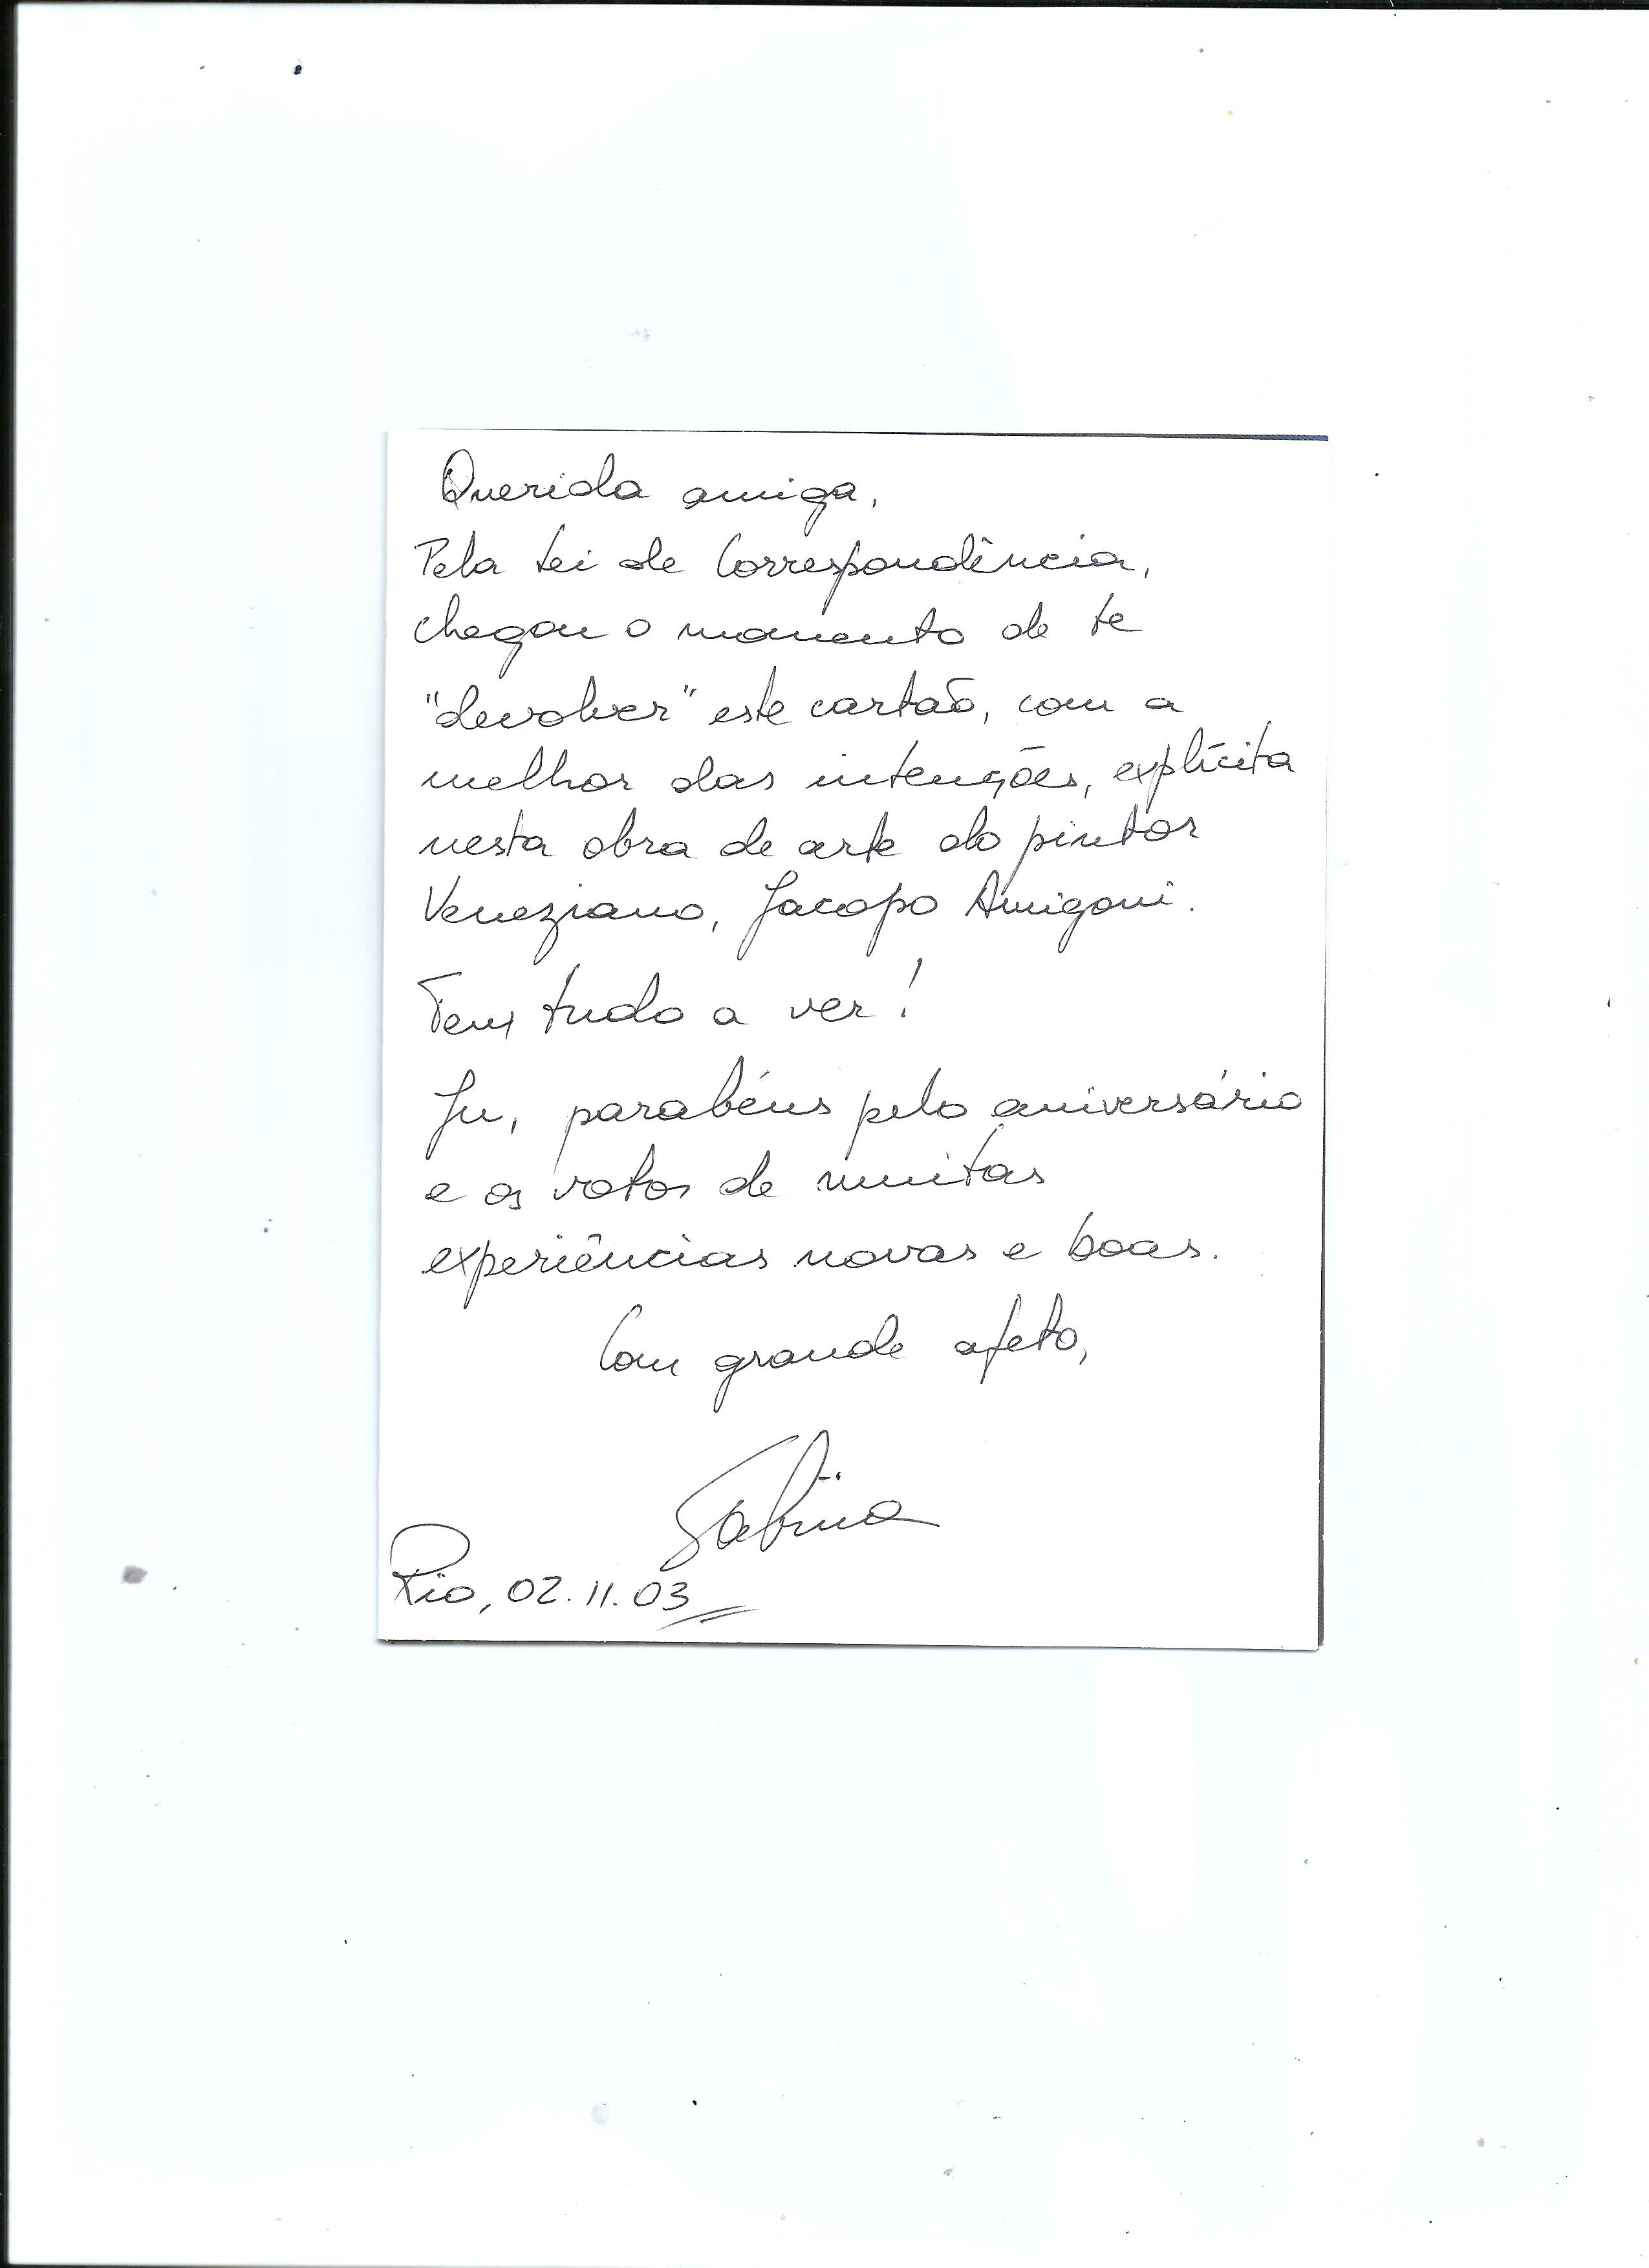 Querida amiga,
Pela Lei de Correspondência,
chegou o momento de te
"devolver" este cartão, com a
melhor das intenções, explícita
nesta obra de arte do pintor
Veneziano, Jacopo Amigoni.
Tem tudo a ver!
Ju, parabéns pelo aniversário
e os votos de muitas
experiências novas e boas.
Com grande afeto,
Sabrina
Rio, 02.11.03